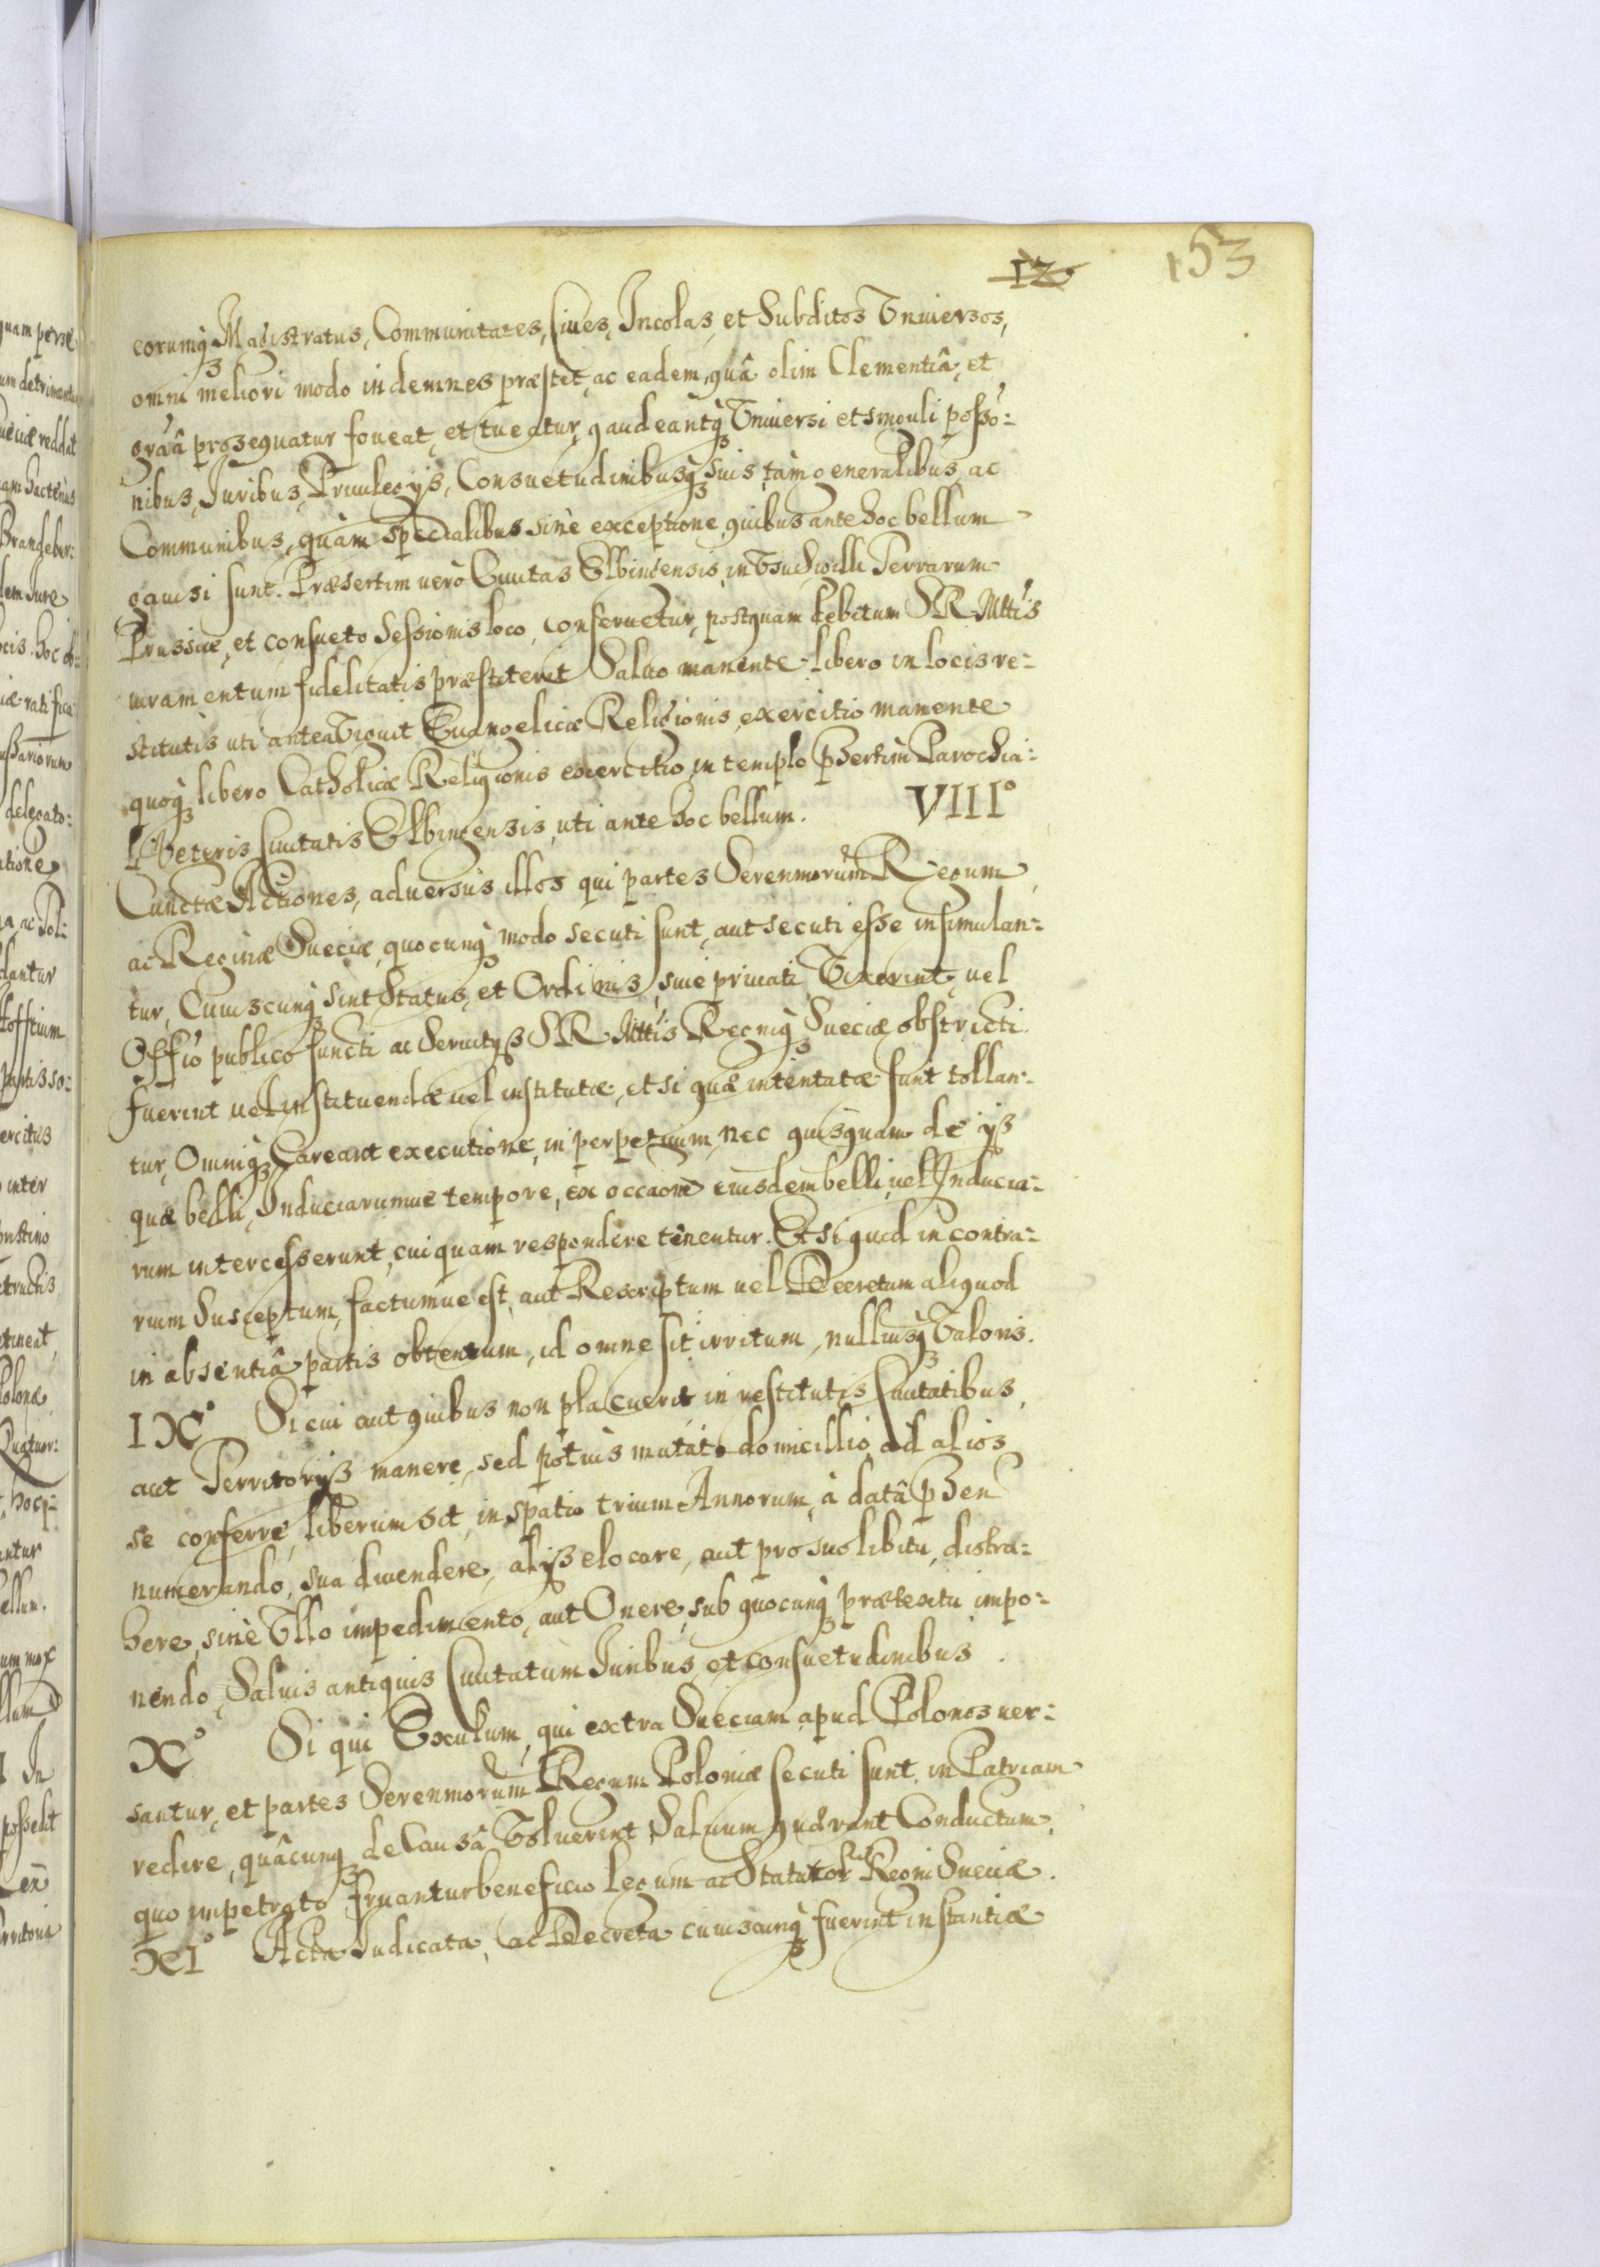 12
153
eorumq Magistratus, Communitates, Ciues, Incolas, et Subditos Vniuersos,
omni meliori modo indemnes præstet, ac eadem, quâ olim Clementiâ, et
grãâ prosequatur foueat, et tueatur, gaudeantq Vniuersi et singuli posso:
nibus, Iuribus, Priuilegijs, Consuetudinibusq suis, tàm generalibus, ac
Communibus, quàm specialibus sinè exceptione, quibus ante hoc bellum
gauisi sunt. Præsertim uerò Ciuitas Elbingensis, in Vsu Sigilli Terrarum
Prussiæ, et consueto Sessionis loco, conseruetur, postquam debitum S R Mttis
iuramentum fidelitatis præstiterit Saluo manente libero in locis re:
stitutis uti antea Viguit Euangelicæ Religionis, exercitio manente
quoq libero Catholicæ Religionis exercitio, in templo phertim Parochia:
li Veteris Ciuitatis Elbingensis, uti ante hoc bellum. VIIIo
Cunctæ Actiones, aduersus illos qui partes Serenmorum Regum,
ac Reginæ Sueciæ, quocunq modo secuti sunt, aut secuti esse insimulan:
tur, Cuiuscunq sint Status, et Ordinis, siue priuati Vixerint, uel
Offio publico functi ac Seruitijs S R Mttis Regniq Sueciæ obstricti
fuerint uel instituendæ uel institutæ, et si quæ intentatæ sunt tollan:
tur, Omniq Careant executione, in perpetuum, nec quisquam de ijs
quæ belli, Induciarumue tempore, ex occaone eiusdem belli, uel Inducia:
rum intercesserunt, cuiquam respondere tenentur. Et si quid in contra:
rium Susceptum, factumue est, aut Rescriptum uel Decretum aliquod
in absentiâ partis obtentum, id omne sit irritum, nulliusq Valoris.
IXo Si cui aut quibus non placuerit in restitutis Ciuitatibus,
aut Territorijs manere, sed potius mutato domicillio, ad alios
se conferre, liberum sit, in spatio trium Annorum, à datâ phen
numerando, sua diuendere, alijs elocare, aut pro suo libitu, distra:
here, sinè Vllo impedimento, aut Onere, sub quocunq prætextu impo:
nendo, Saluis antiquis Ciuitatum Iuribus, et consuetudinibus.
Xo Si qui Exulum, qui extra Sueciam apud Polonos uer:
santur, et partes Serenmorum Regum Poloniæ secuti sunt, in Patriam
redire, quâcunq de Causâ, Voluerint, Saluum quærant Conductum,
quo impetrato fruantur beneficio Legum ac Statutor Regni Sueciæ.
XIo Acta Iudicata, ac Decreta cuiuscunq fuerint instantiæ